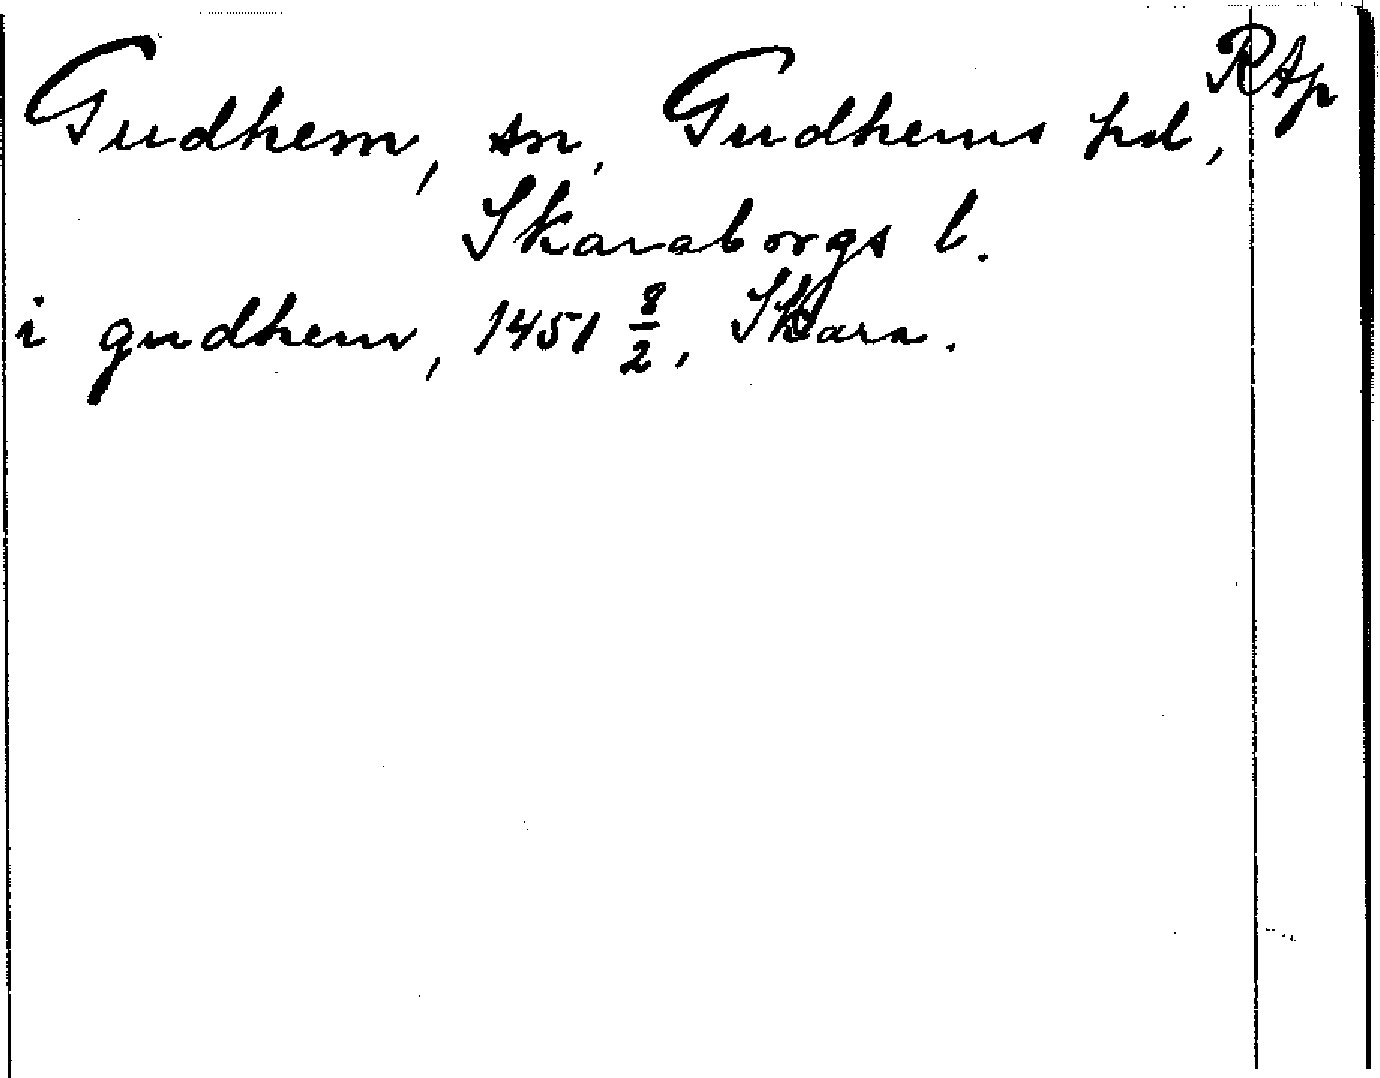 Gudhem, sn, Gudhems hd, RAp
Skaraborgs l.
i gudhem, 1451 8/2, Skara.